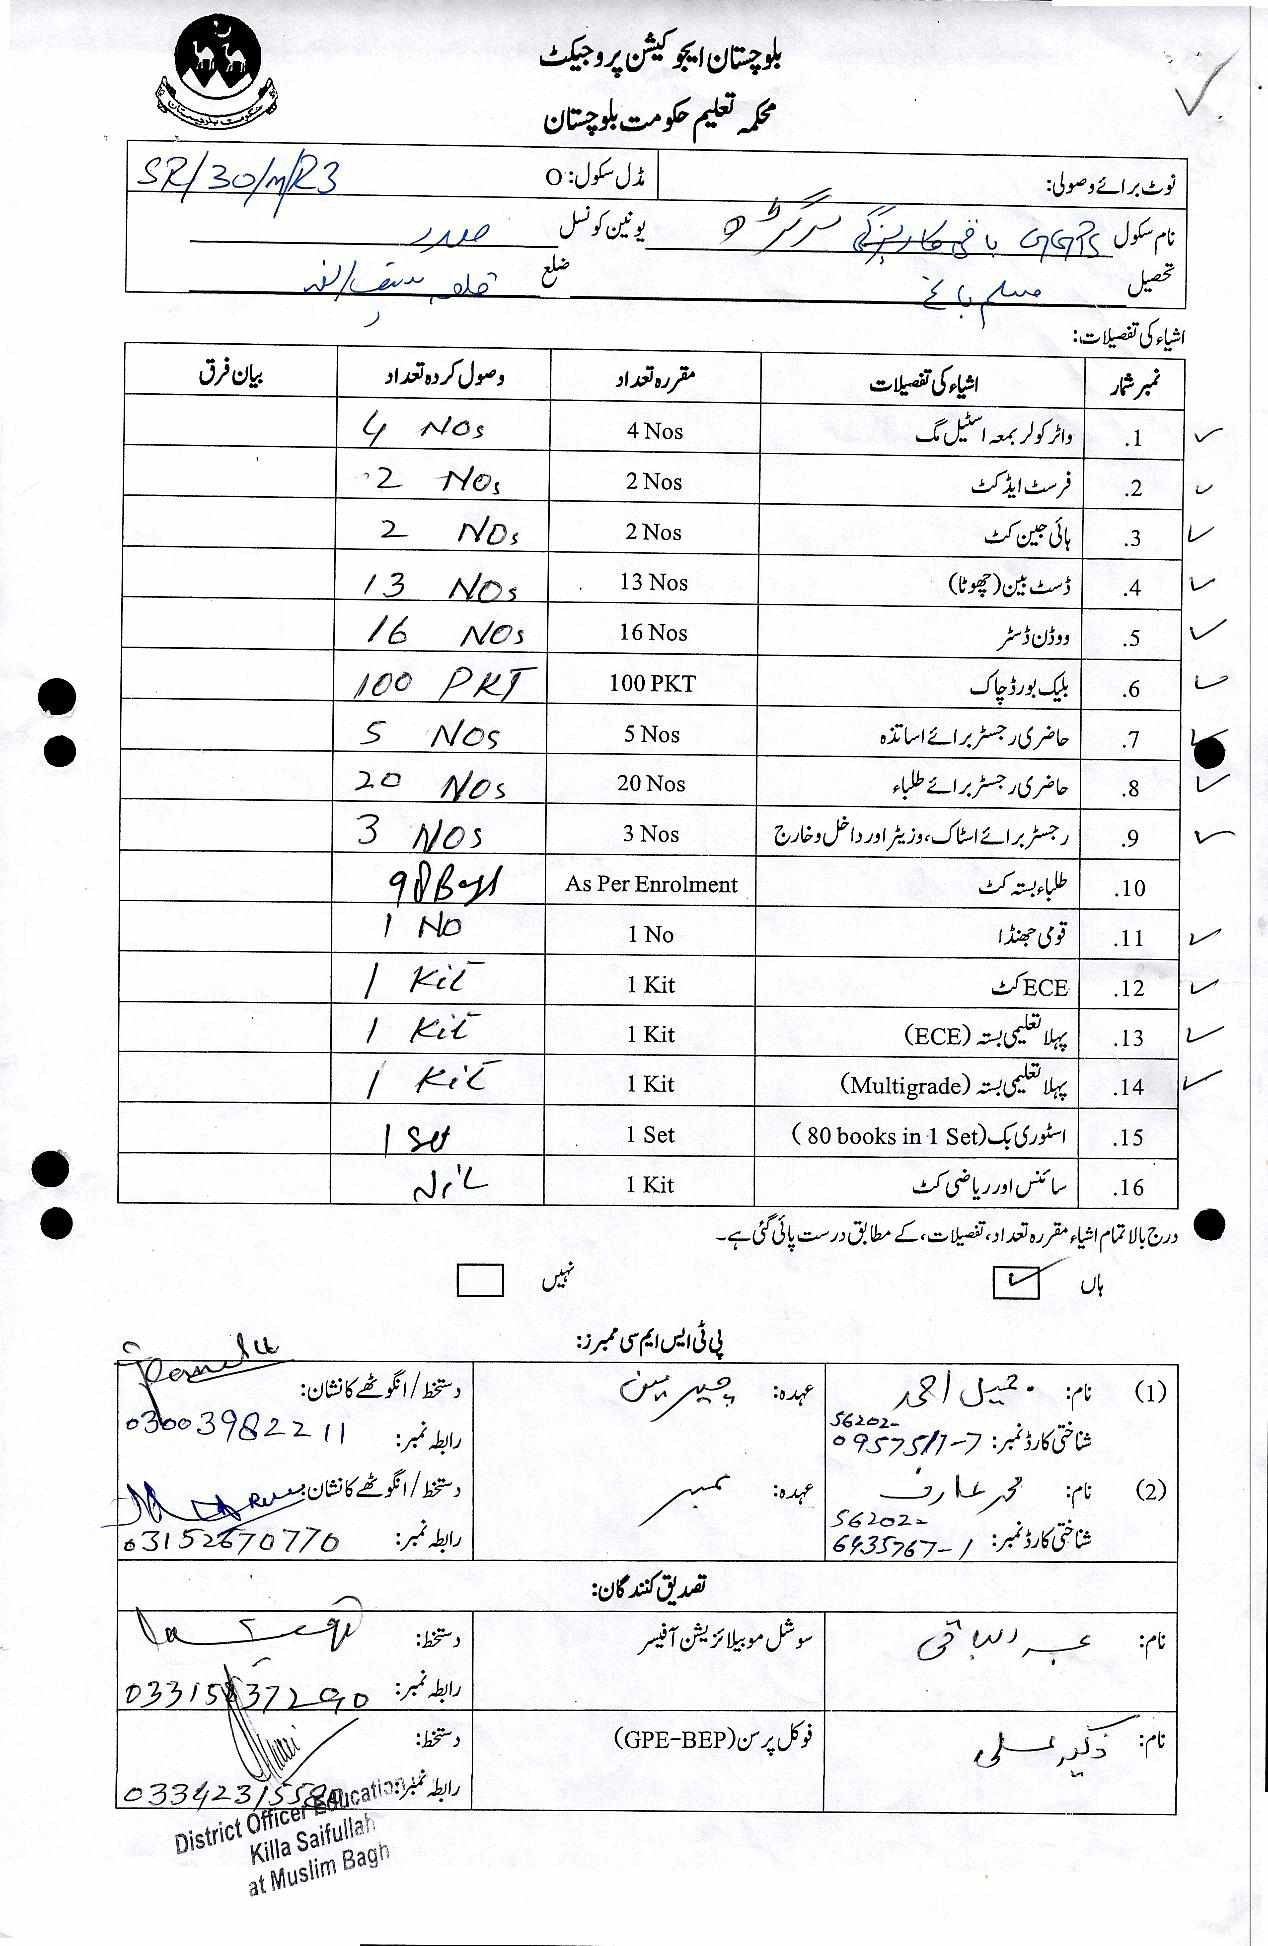 بلوچستان ایجوکیشن پروجیکٹ
محکمہ تعلیم حکومت بلوچستان
حکومت بلوچستان
نوٹ برائے وصولی: مڈل سکول: O SR/30/M/R3
نام سکول GGPS سرگڑھ یونین کونسل صدر
تحصیل مسلم باغ ضلع قلعہ سیف اللہ
اشیاء کی تفصیلات:
نمبر شمار اشیاء کی تفصیلات مقررہ تعداد وصول کردہ تعداد بیان فرق
1. واٹر کولر بمعہ اسٹیل مگ 4 Nos 4 NOs
2. فرسٹ ایڈ کٹ 2 Nos 2 NOs
3. ہائی جین کٹ 2 Nos 2 NOs
4. ڈسٹ بین (چھوٹا) 13 Nos 13 NOs
5. ووڈن ڈسٹر 16 Nos 16 NOs
6. بلیک بورڈ چاک 100 PKT 100 PKT
7. حاضری رجسٹر برائے اساتذہ 5 Nos 5 NOs
8. حاضری رجسٹر برائے طلباء 20 Nos 20 NOs
9. رجسٹر برائے اسٹاک، وزیٹر اور داخل و خارج 3 Nos 3 NOs
10. طلباء بستہ کٹ As Per Enrolment 98 Bags
11. قومی جھنڈا 1 No 1 No
12. ECE کٹ 1 Kit 1 Kit
13. پہلا تعلیمی بستہ (ECE) 1 Kit 1 Kit
14. پہلا تعلیمی بستہ (Multigrade) 1 Kit 1 Kit
15. اسٹوری بک (80 books in 1 Set) 1 Set 1 Set
16. سائنس اور ریاضی کٹ 1 Kit Nil
درج بالا تمام اشیاء مقررہ تعداد، تفصیلات، کے مطابق درست پائی گئی ہے۔
ہاں نہیں
پی ٹی ایس ایم سی ممبرز:
(1) نام: جمیل احمد عہدہ: چیئرمین دستخط / انگوٹھے کا نشان:
شناختی کارڈ نمبر: 56202-0957517-7 رابطہ نمبر: 03003982211
(2) نام: محمد عارف عہدہ: ممبر دستخط / انگوٹھے کا نشان:
شناختی کارڈ نمبر: 56202-6935767-1 رابطہ نمبر: 03152670770
تصدیق کنندگان:
نام: عبدالباقی سوشل موبیلائزیشن آفیسر دستخط:
رابطہ نمبر: 03315837290
نام: فوکل پرسن (GPE-BEP) دستخط:
رابطہ نمبر:
District Officer Education
Killa Saifullah
at Muslim Bagh